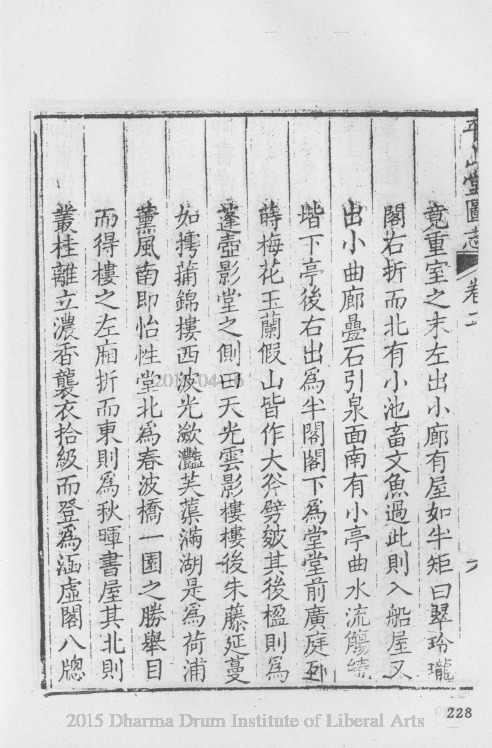 平山堂圖志 卷二
竟重室之末左出小廊有屋如半矩曰翠玲瓏
閣右折而北有小池畜文魚過此則入船屋又
出小曲廊疊石引泉面南有小亭曲水流觴繞
堦下亭後右出為半閣閣下為堂堂前廣庭列
蒔梅花玉蘭假山皆作大斧劈皴其後楹則為
蓬壺影堂之側曰天光雲影樓樓後朱藤延蔓
如擕蒲錦樓西波光瀲灩芙蕖滿湖是為荷浦
薰風南即怡性堂北為春波橋一園之勝舉目
而得樓之左廂折而東則為秋暉書屋其北則
叢桂離立濃香襲衣拾級而登為涵虛閣八牕
228
2015 Dharma Drum Institute of Liberal Arts